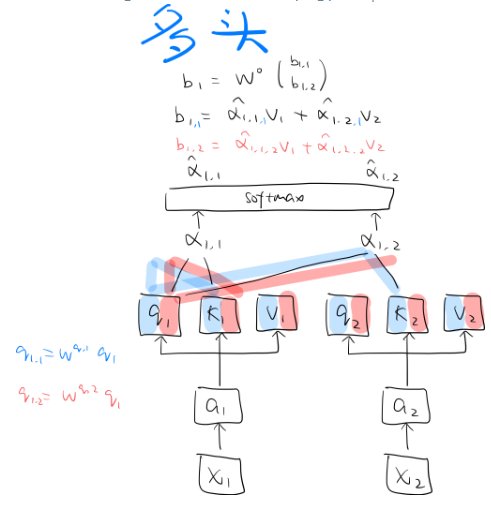 多头
b₁ = W⁰ (b₁,₁ b₁,₂)
b₁,₁ = α̂₁,₁,₁V₁ + α̂₁,₂,₁V₂
b₁,₂ = α̂₁,₁,₂V₁ + α̂₁,₂,₂V₂
α̂₁,₁ α̂₁,₂
softmax
α₁,₁ α₁,₂
q₁ K₁ V₁ q₂ K₂ V₂
q₁,₁ = W^q,¹ q₁
q₁,₂ = W^q,² q₁
a₁ a₂
X₁ X₂